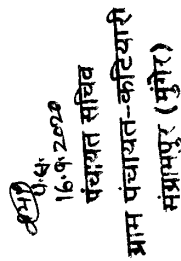 16.9.2020
पंचायत सचिव
ग्राम पंचायत-कटियारी
संग्रामपुर (मुंगेर)